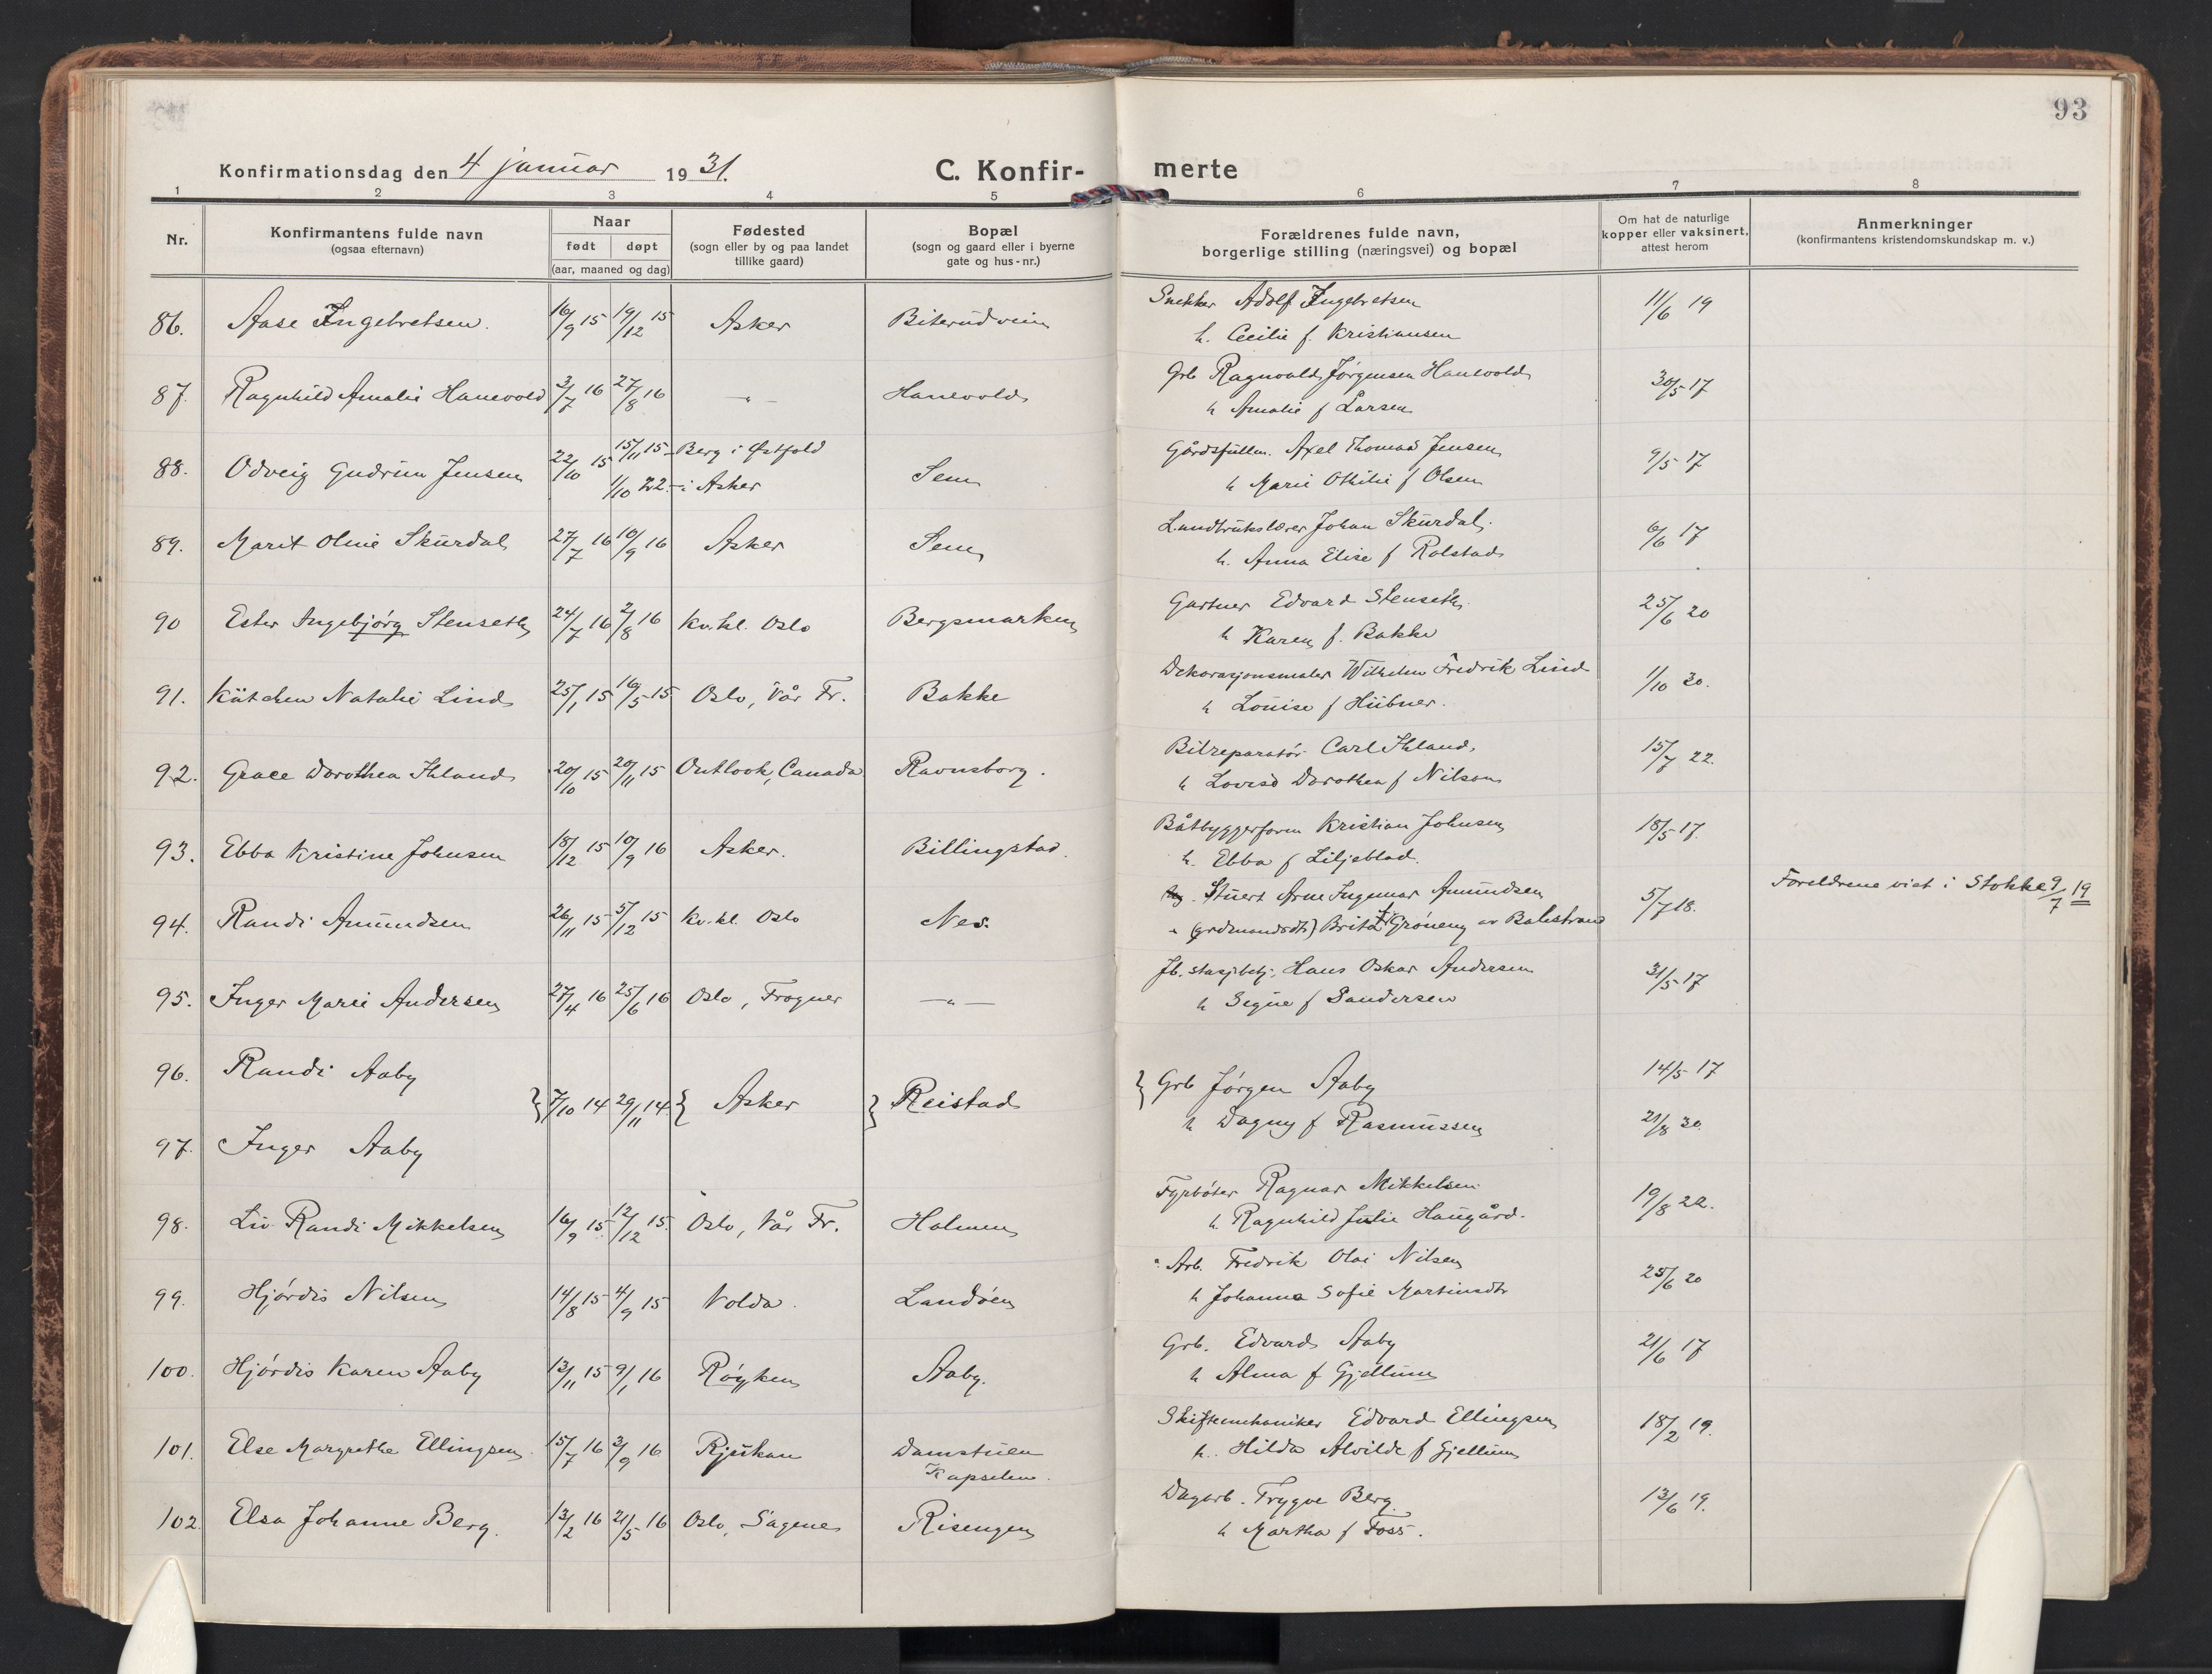 93
Konfirmationsdag den 4 januar 1931.
C. Konfir-
merte
1 2 3 4 5 6 7 8
Nr.
Konfirmantens fulde navn
(ogsaa efternavn)
Naar
født døpt
(aar, maaned og dag)
Fødested
(sogn eller by og paa landet
tillike gaard)
Bopæl
(sogn og gaard eller i byerne
gate og hus-nr.)
Forældrenes fulde navn,
borgerlige stilling (næringsvei) og bopæl
Om hat de naturlige
kopper eller vaksinert,
attest herom
Anmerkninger
(konfirmantens kristendomskundskap m. v.)
86. Aase Ingebretsen. 16/9 15 19/12 15 Asker Biterudveien Snekker Adolf Ingebretsen 11/6 19
h. Cecilie f. Kristiansen
87. Ragnhild Amalie Hanevold 3/7 16 27/8 16 -"- Hanevold Grb Ragnvald Jørgensen Hanevold 30/5 17
h Amalie f Larsen
88. Odveig Gudrun Jensen 22/10 15 15/11 15 - Berg i Østfold Sem Gårdsfullm. Axel Thomas Jensen 9/5 17
1/10 22 - i Asker h Marie Othilie f Olsen
89. Marit Oline Skurdal 27/7 16 10/9 16 Asker Sem Landbrukslærer Johan Skurdal. 6/6 17
h. Anna Elise f Rolstad
90 Ester Ingebjørg Stenseth 24/7 16 2/8 16 Kv.kl. Oslo Bergsmarken Gartner Edvard Stenseth. 25/6 20
h Karen f. Bakke
91. Kätchen Natalie Lind 25/1 15 16/5 15 Oslo, Vår Fr. Bakke Dekorasjonsmaler Wilhelm Fredrik Lind 1/10 30.
h Louise f Hübner.
92. Grace Dorothea Ihland 20/10 15 20/11 15 Outlook, Canada Ravnsborg. Bilreparatør Carl Ihland. 15/7 22.
h Lovise Dorothea f Nilson
93. Ebba Kristine Johnsen 18/12 15 10/9 16 Asker. Billingstad. Båtbyggerform Kristian Johnsen 18/5 17.
h. Ebba f Liljeblad.
94. Randi Amundsen 26/11 15 5/12 15 Kv.kl. Oslo Nes. Stuert Arne Ingemar Amundsen 5/7 18. Foreldrene viet i Stokke 9/7 19
(grdmandsdtr) Brita Grøneng av Balestrand
95. Inger Marie Andersen 27/4 16 25/6 16 Oslo, Frogner -"- Jb. stasjbetj. Hans Oskar Andersen 31/5 17
h Signe f Sandersen
96. Randi Aaby 14/5 17
} 7/10 14 29/11 14 { Asker } Reistad } Grb Jørgen Aaby
h Dagny f Rasmussen 21/8 30.
97. Inger Aaby
98. Liv Randi Mikkelsen 16/9 15 12/12 15. Oslo, Vår Fr. Holmen Fyrbøter Ragnar Mikkelsen 19/8 22.
h. Ragnhild Julie Haugård.
99. Hjørdis Nilsen 14/8 15 4/9 15 Volda. Landøen Arb. Fredrik Olai Nilsen 25/6 20
h Johanna Sofie Martinsdtr
100. Hjørdis Karen Aaby 13/11 15 9/1 16 Røyken Aaby. Grb. Edvard Aaby 21/6 17
h Alma f Gjellum
101. Else Margrethe Ellingsen 15/7 16 3/9 16 Rjukan Damstuen Skiftemekaniker Edvard Ellingsen 18/2 19.
Kapselen. h. Hilda Alvilde f Gjellum
102. Elsa Johanne Berg. 13/2 16 21/5 16 Oslo, Sagene Risengen Dagarb. Trygve Berg. 13/6 19.
h Martha f Foss.